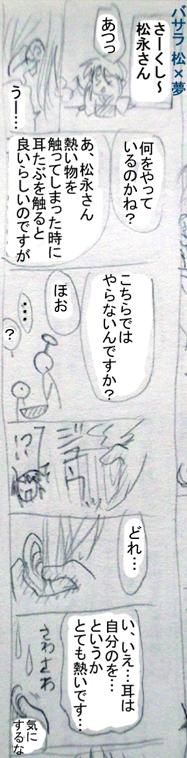 バサラ 松×夢
さーくし～
松永さん
あつっ
うー…
何をやって
いるのかね?
あ、松永さん
熱い物を
触ってしまった時に
耳たぶを触ると
良いらしいのですが
こちらでは
やらないんですか?
ほお
…
?
ジュウ
!?
どれ…
い、いえ…耳は
自分のを…
というか
とても熱いです…
さわさわ
気に
するな